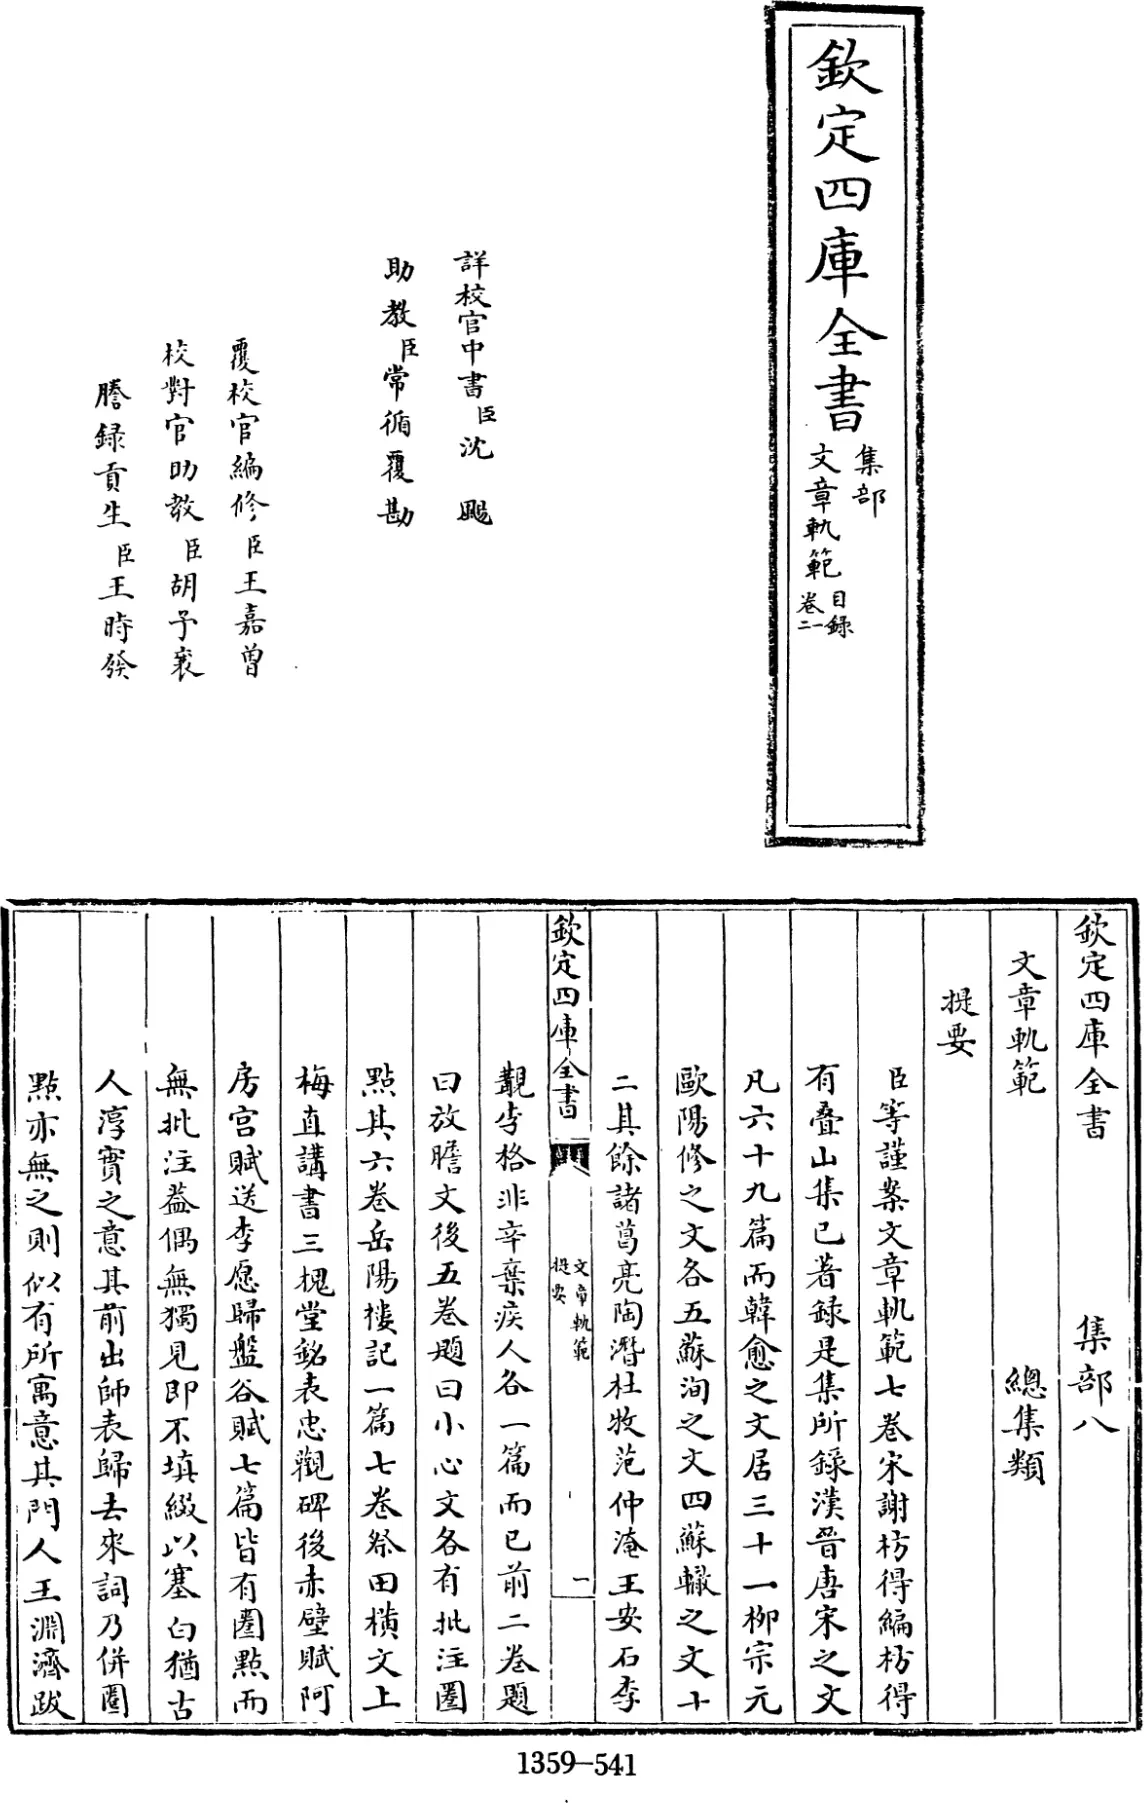 欽定四庫全書
集部
文章軌範
目錄
卷一二
詳校官中書臣沈颺
助教臣常循覆勘
覆校官編修臣王嘉曾
校對官助教臣胡予襄
謄錄貢生臣王時發
欽定四庫全書 集部八
文章軌範 總集類
提要
臣等謹案文章軌範七卷宋謝枋得編枋得
有疊山集已著録是集所錄漢晉唐宋之文
凡六十九篇而韓愈之文居三十一柳宗元
歐陽修之文各五蘇洵之文四蘇轍之文十
二其餘諸葛亮陶潛杜牧范仲淹王安石李
欽定四庫全書
文章軌範
提要
一
覯李格非辛棄疾人各一篇而已前二卷題
曰放膽文後五卷題曰小心文各有批注圈
點其六卷岳陽樓記一篇七卷祭田橫文上
梅直講書三槐堂銘表忠觀碑後赤壁賦阿
房宮賦送李愿歸盤谷賦七篇皆有圈點而
無批注葢偶無獨見即不填綴以塞白猶古
人淳實之意其前出師表歸去來詞乃併圈
點亦無之則似有所寓意其門人王淵濟跋
1359–541